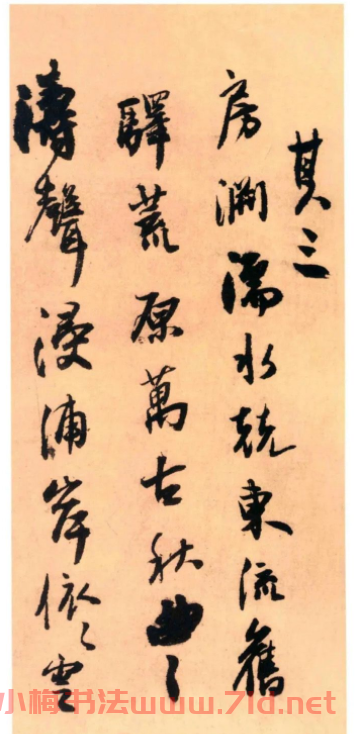 其三
房澗濡水競東流舊
驛荒原萬古秋曲々
濤聲浸浦岸依々雲
小梅书法www.7ld.net